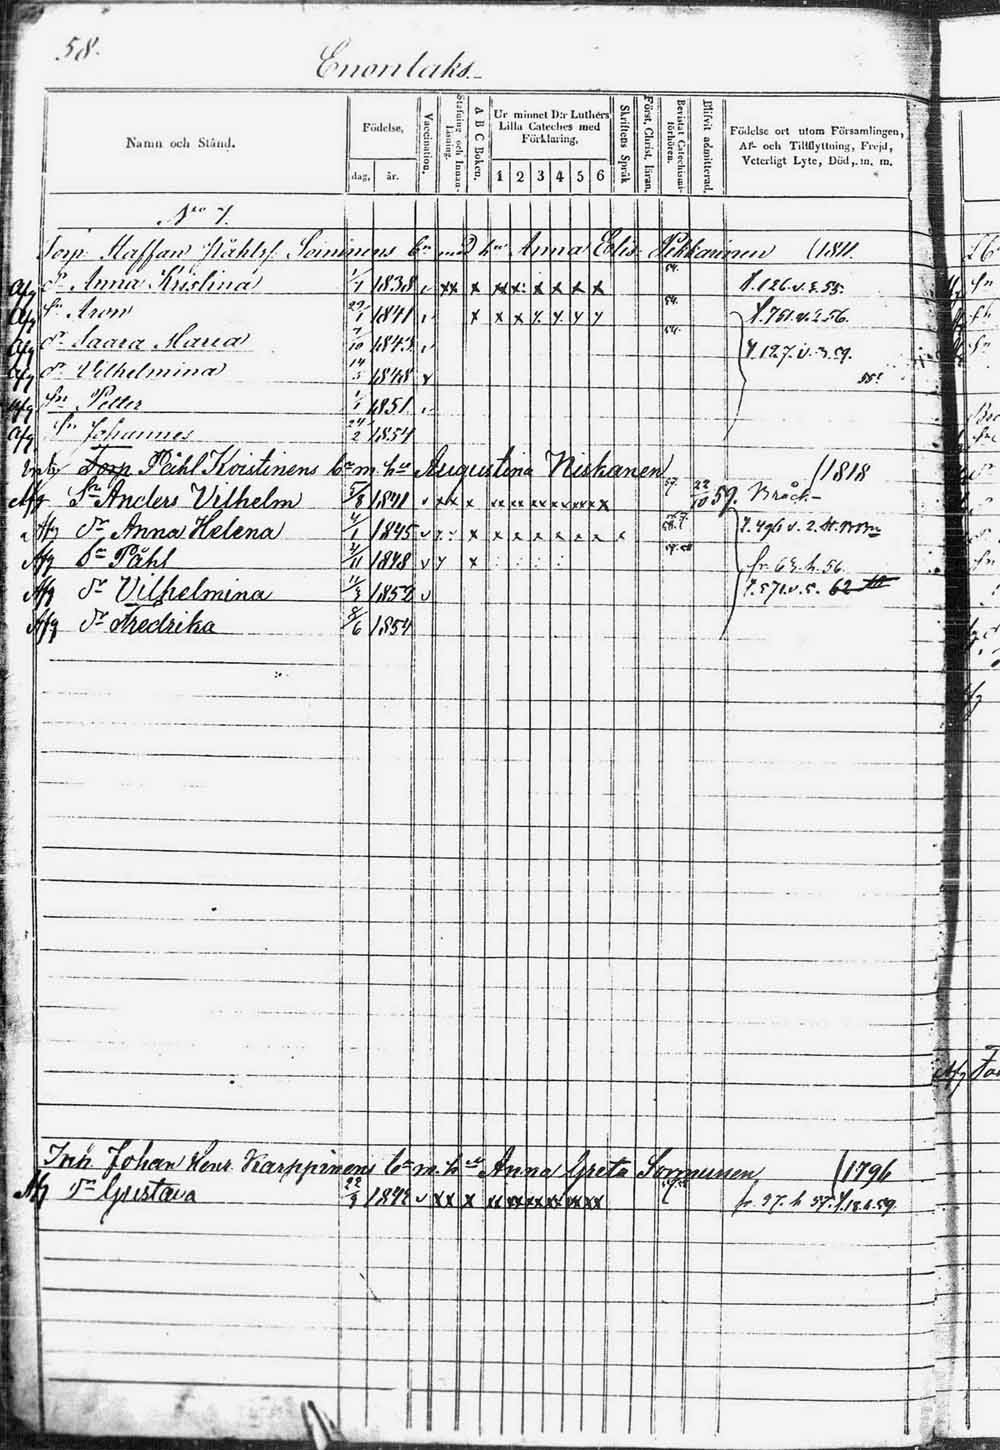 58.
Enonlaks.
Namn och Stånd.
Födelse,
dag,
år.
Vaccination.
Stafning och Innan-Läsning.
A B C Boken.
Ur minnet D:r Luthers Lilla Cateches med Förklaring.
1 2 3 4 5 6
Skriftens Språk
Först. Christ. läran.
Bevistat Catechismi-förhören.
Blifvit admitterad.
Födelse ort utom Församlingen, Af- och Tillflyttning, Frejd, Veterligt Lyte, Död, m. m.
N:ro 7.
Torp. Staffan Påhlsf. Soininens b:n med h:u Anna Elis: Pekkarinen 1811.
Afg D:r Anna Kristina 1/1 1838 x x x x x x x x 54. f. 126. v. s. 55.
Afg S:n Aron 29/1 1841 x x x x x y y 54. f. 751. v. s. 56.
Afg D:r Saara Maria 7/10 1843 54. f. 127. v. s. 59.
Afg D:r Vilhelmina 14/5 1848
Afg S:n Petter 1/1 1851.
Afg S:n Johannes 24/2 1854
Torp Påhl Koistinens b:n m. h:u Augustina Niskanen 1818
Afg S:n Anders Vilhelm 5/8 1841 x x x x x x x x x 57. 22/10 59. Bråck
Afg D:r Anna Helena 4/1 1845 x x x x x x x 58. f. 496 v. 2.
Afg S:n Påhl 2/11 1848 y x fr. 63. h. 56.
Afg D:r Vilhelmina 11/3 1852 f. 571. v. s. 62
Afg D:r Fredrika 8/6 1854
Inh. Johan Henr. Karppinens b:n m. h:u Anna Greta Sormunen 1796
Afg D:r Gustava 22/9 1842 x x x x x x x x x fr. 97. h 57. f. 18. s. 59.